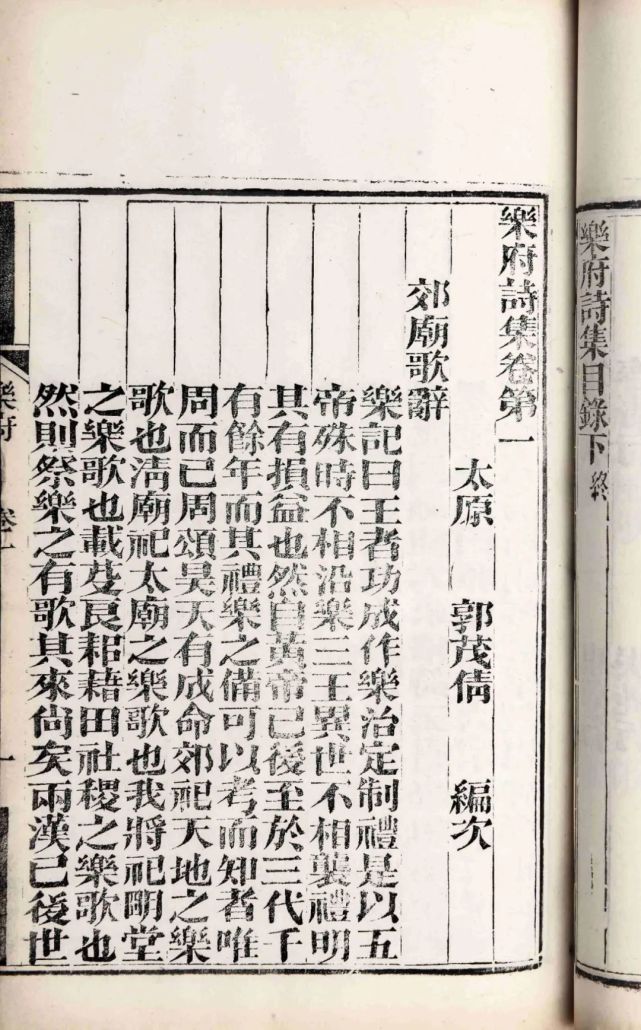 樂府詩集目錄下 終
樂府詩集卷第一
太原 郭茂倩 編次
郊廟歌辭
樂記曰王者功成作樂治定制禮是以五
帝殊時不相沿樂三王異世不相襲禮明
其有損益也然自黃帝已後至於三代千
有餘年而其禮樂之備可以考而知者唯
周而已周頌昊天有成命郊祀天地之樂
歌也淸廟祀太廟之樂歌也我將祀明堂
之樂歌也載芟良耜藉田社稷之樂歌也
然則祭樂之有歌其來尙矣兩漢已後世
樂府 卷一 一